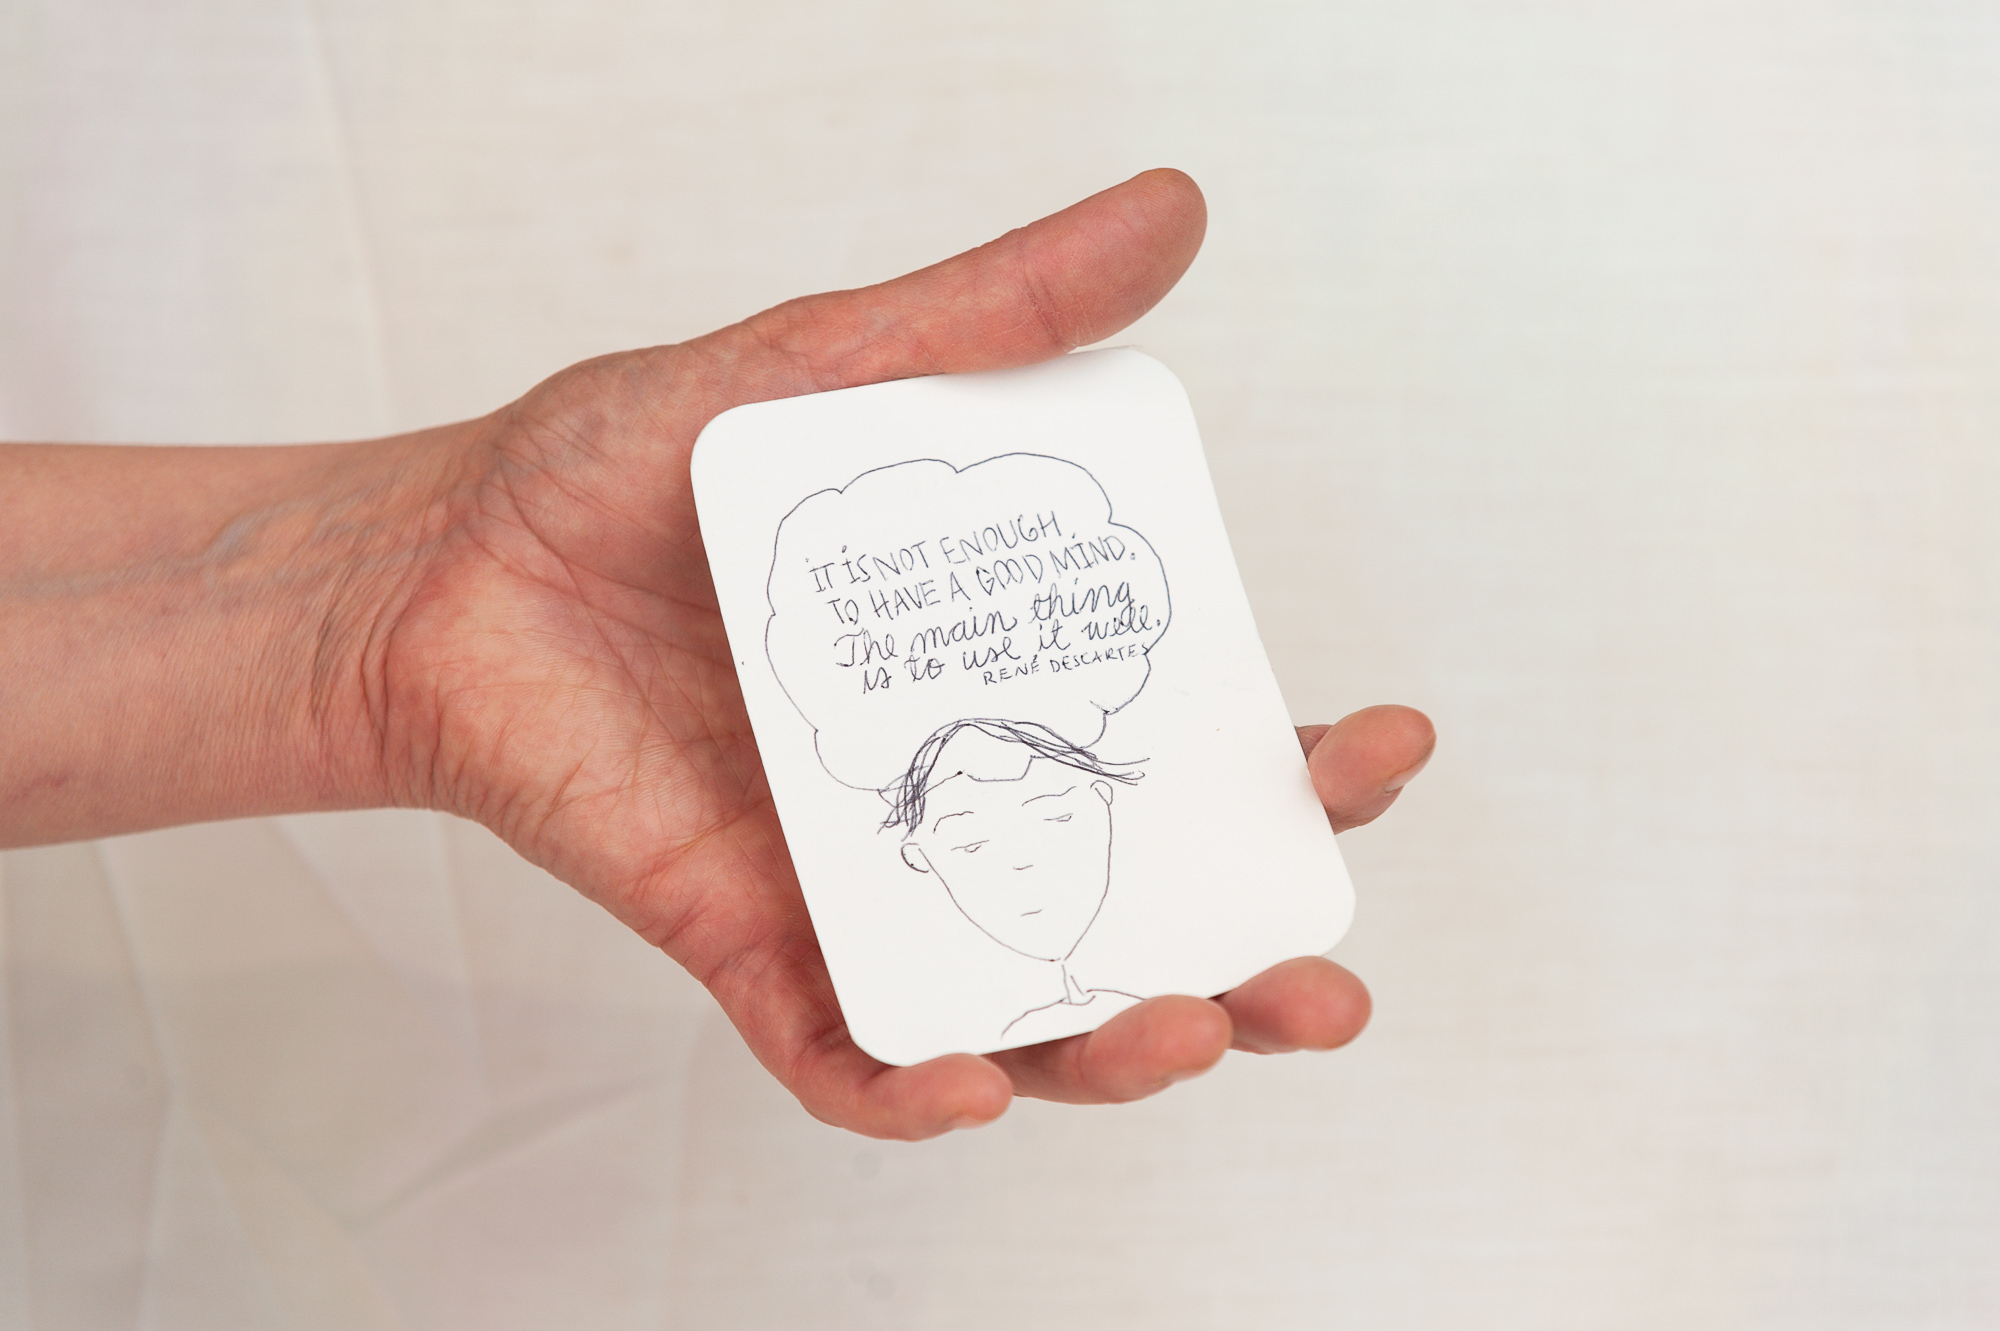 IT IS NOT ENOUGH
TO HAVE A GOOD MIND.
The main thing
is to use it well.
RENÉ DESCARTES